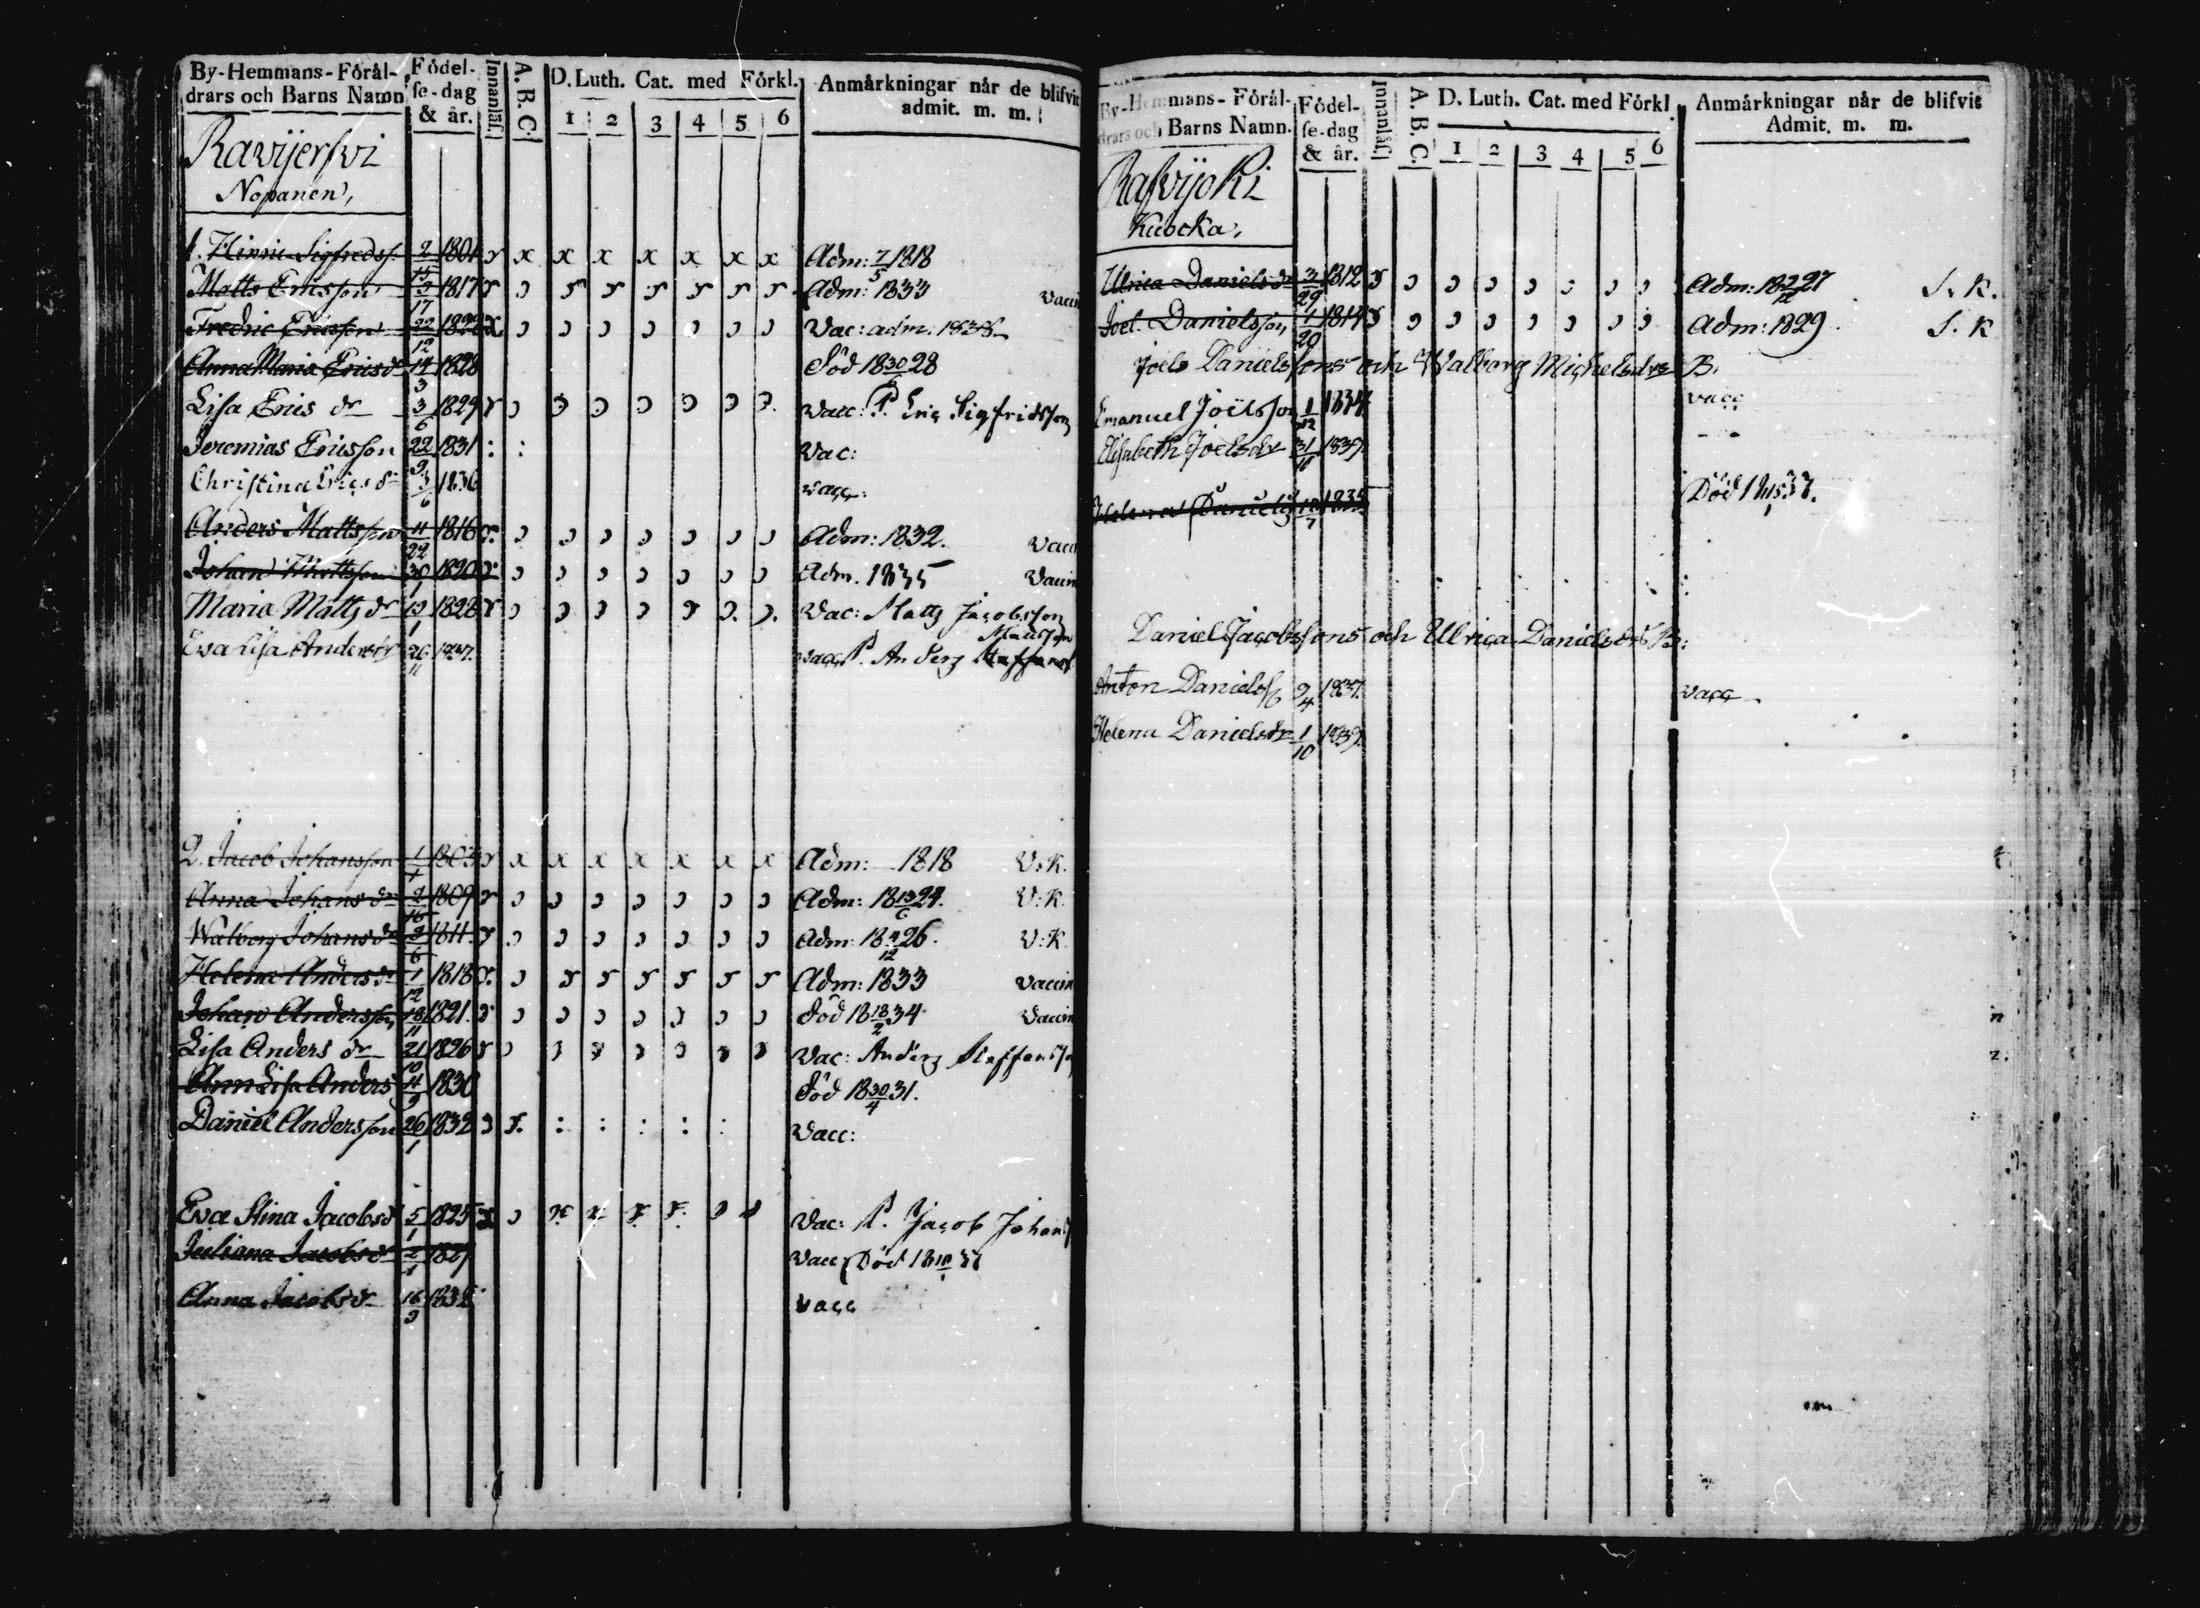 By-Hemmans-Förål-
drars och Barns Namn
Födel-
se-dag
& år.
Innanläs.
A. B. C.
D. Luth. Cat. med Förkl.
1 2 3 4 5 6
Anmärkningar når de blifvit
admit. m. m.
Ravijerfvi
Nopanen,
1. Hinric Sigfredss. 2/15 1801 x x x x x x x Adm: 7/5 1818
Matts Ericsson 3/17 1817 Adm: 1833
Fredric Ericsson 22/12 1822 Vac: adm. 1838
Anna Maria Erics dr 14/3 1828 Död 18 30 28
Lisa Erics dr 3/6 1829 Vacc: P. Eric Sigfridsson
Jeremias Ericsson 22/9 1831 : : Vac:
Christina Erics dr 3/6 1836 vacc:
Anders Mattsson 11/22 1816 Adm: 1832.
Johan Mattsson 30/1 1820 Adm. 1835 Vaccin
Maria Matts dr 19/1 1828 Vac: Matts Jacobsson
Mattsson
Eva Lisa Andersdr 26/11 1837. vacc P. Anders
2. Jacob Johansson 1/1 1803 x x x x x x x Adm: 1818 V:K.
Anna Johans dr 2/16 1809 Adm: 18 13/6 24. V:K.
Walborg Johans dr 3/6 1811. Adm: 18 /12 26. V:K.
Helena Anders dr 1/12 1818 Adm: 1833 vaccin
Johan Andersson 18/11 1821. Död 18 18/2 34. Vaccin
Lisa Anders dr 21/10 1826 Vac: Anders Staffansso
Ann Lisa Anders 14/9 1830 Död 18 30/4 31.
Daniel Andersson 26/1 1832 : : : : : Vacc:
Eva Stina Jacobsd 5/1 1825 Vac: P. Jacob Johans
Juliana Jacobs dr 2/1 1827 Vacc Död 18 10/1 37
Anna Jacobs dr 16/9 1832 vacc
By-Hemmans-Förål-
drars och Barns Namn.
Födel-
se-dag
& år.
Innanläs.
A. B. C.
D. Luth. Cat. med Förkl
1 2 3 4 5 6
Anmärkningar når de blifvit
Admit. m. m.
Kubcka,
Ulrica Daniels dr 3/29 1812 Adm: 18 2/12 27 S. K.
Joel Danielsson 1/20 1814 Adm: 1829 S. K
Joels Danielssons och Walborg Michelsdrs B.
Emanuel Joëlsson 1834 vacc
Elisabeth Joelsdr 31/10 1839.
Helena Daniels 1835 Död
Daniel Jacobssons och Ulrica Danielsdrs B:
Anton Danielss 9/4 1837. vacc
Helena Danielsdr 1/10 1839.